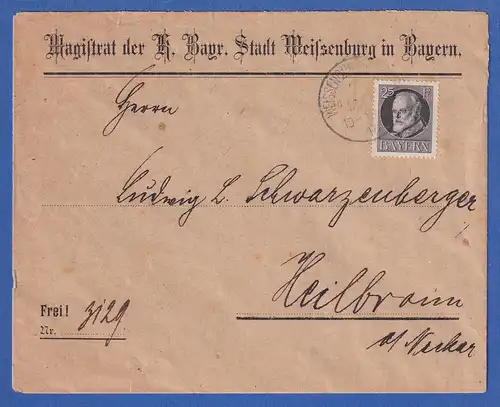 Magistrat der K. Bayr. Stadt Weissenburg in Bayern.
WEISSENB
25 Pf
BAYERN
Herrn
Ludwig L. Schwarzenberger
Heilbronn
a/ Neckar
Frei!
Nr. 3129